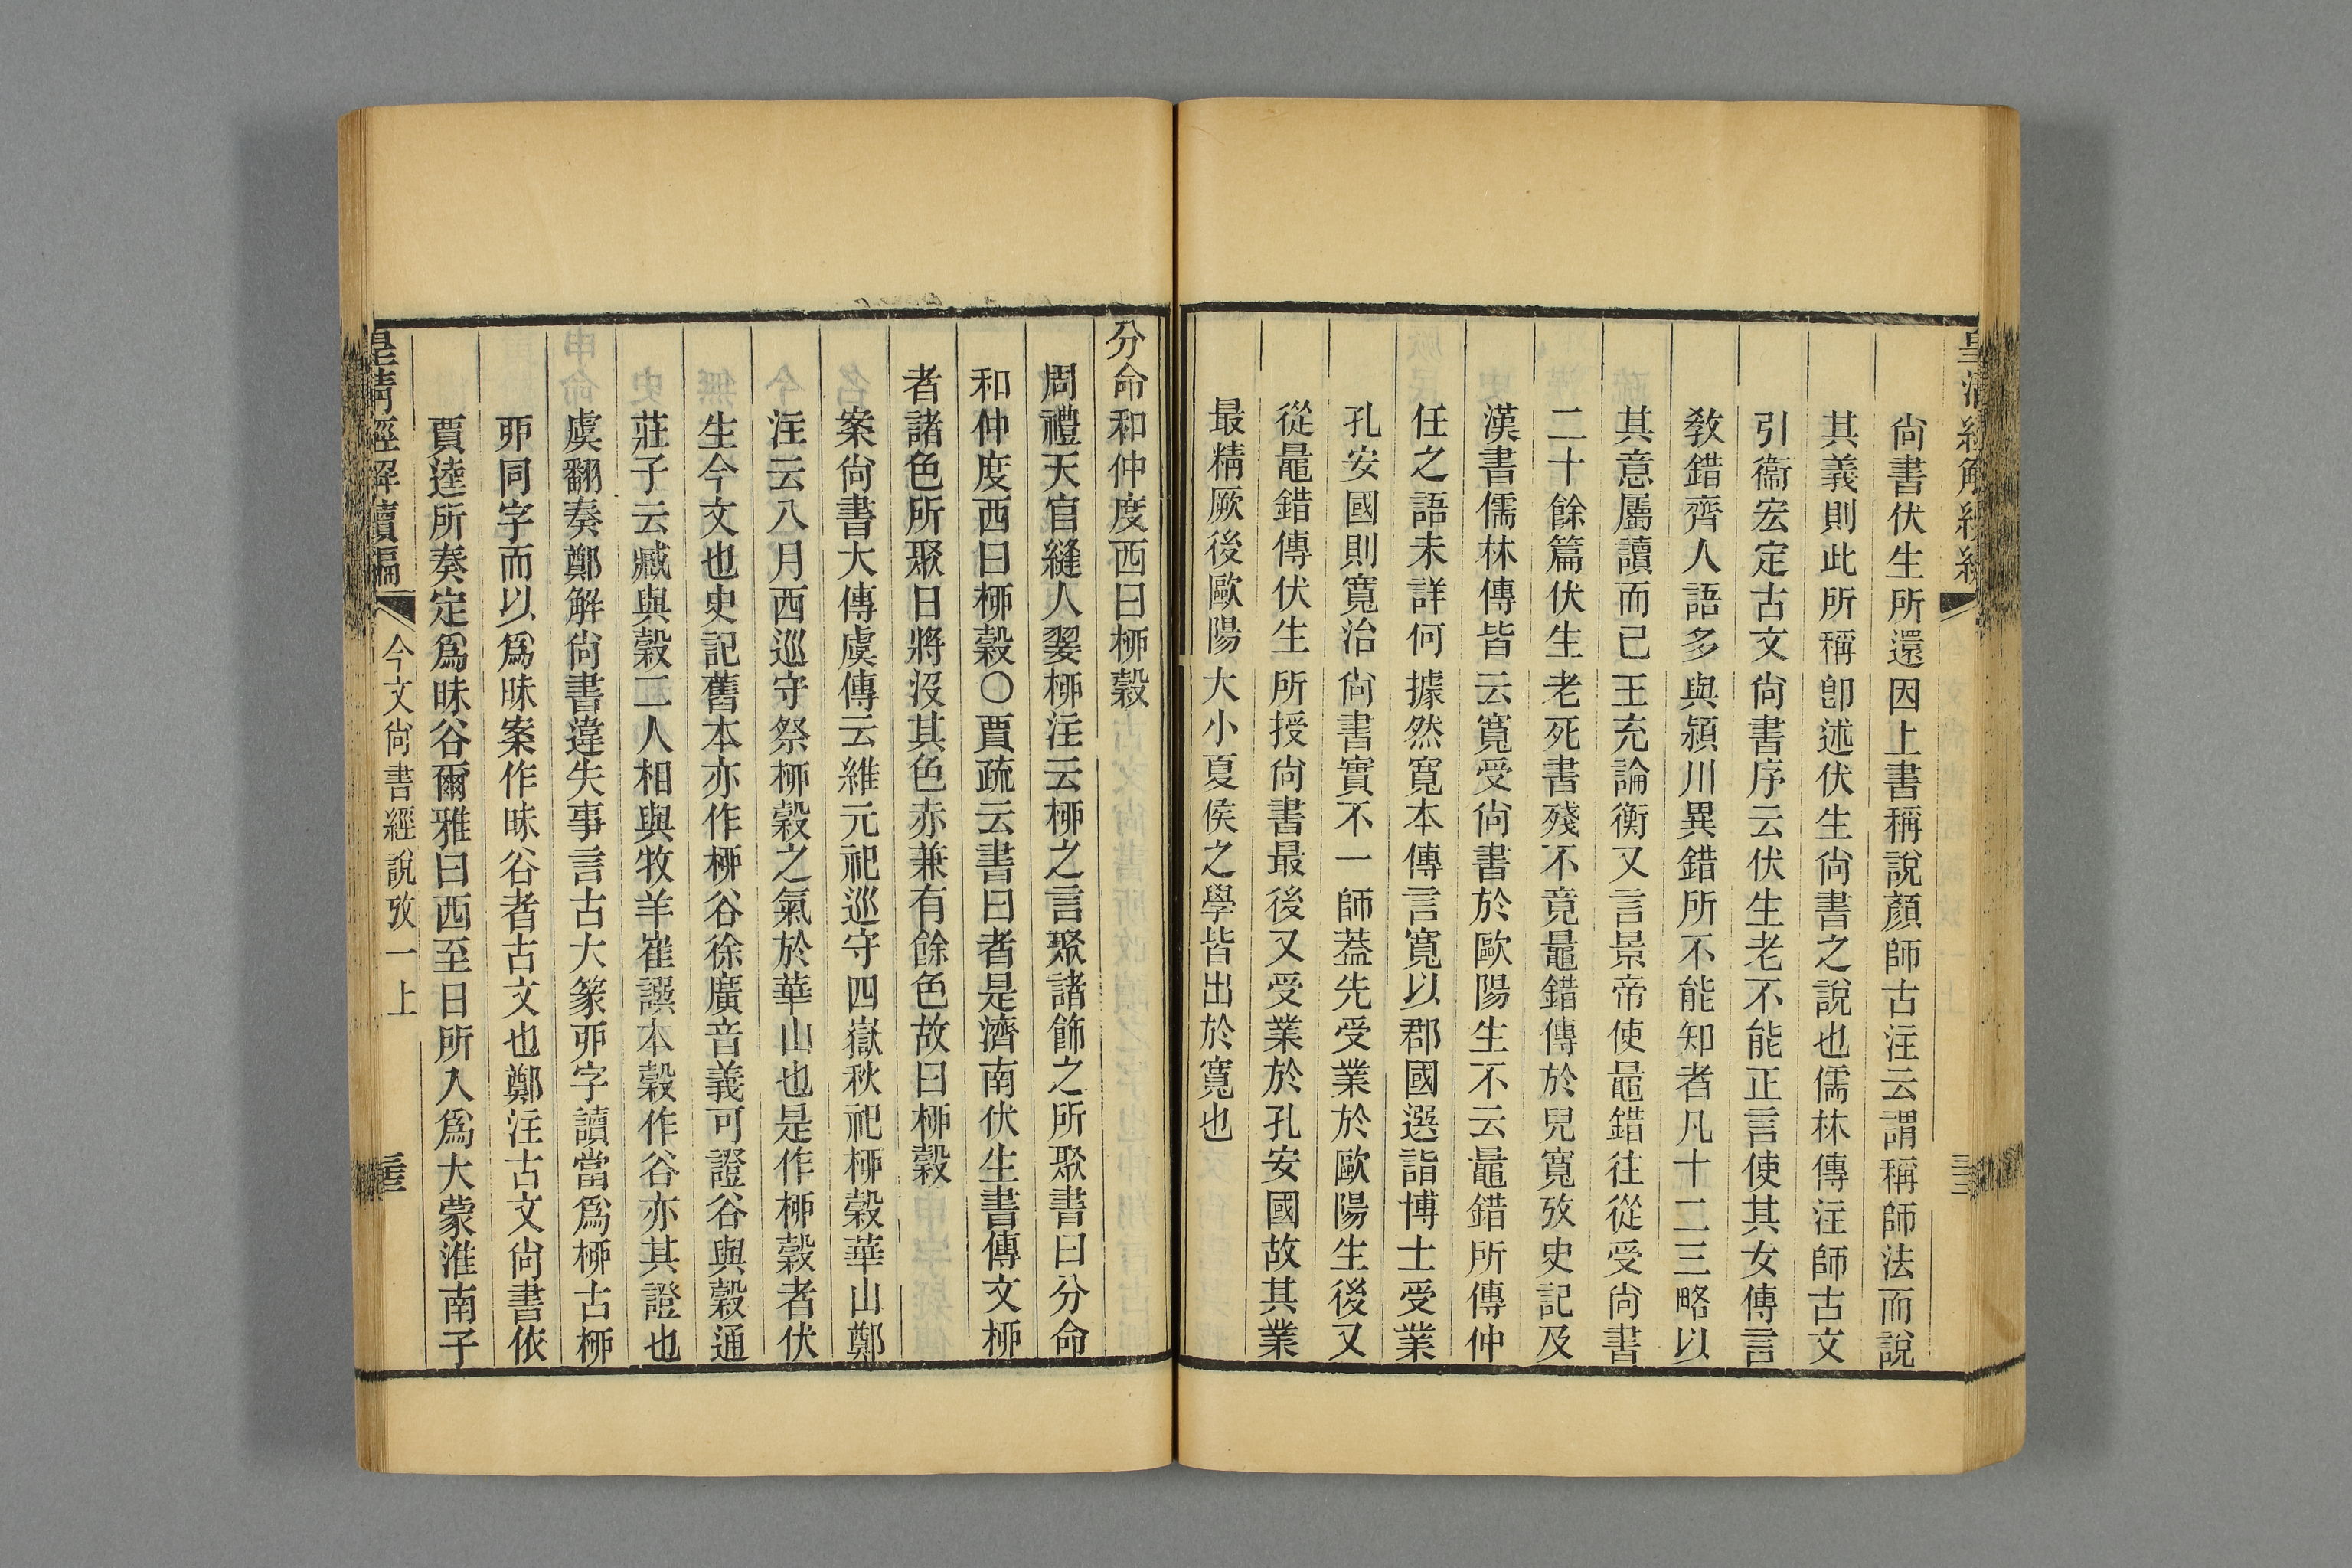 尙書伏生所還因上書稱說顏師古注云謂稱師法而說
其義則此所稱卽述伏生尙書之說也儒林傳注師古文
引衞宏定古文尙書序云伏生老不能正言使其女傳言
敎錯齊人語多與潁川異錯所不能知者凡十二三略以
其意屬讀而已王充論衡又言景帝使鼂錯往從受尙書
二十餘篇伏生老死書殘不竟鼂錯傳於兒寬攷史記及
漢書儒林傳皆云寬受尙書於歐陽生不云鼂錯所傳仲
任之語未詳何據然寬本傳言寬以郡國選詣博士受業
孔安國則寬治尙書實不一師葢先受業於歐陽生後又
從鼂錯傳伏生所授尙書最後又受業於孔安國故其業
最精厥後歐陽大小夏侯之學皆出於寬也
分命和仲度西曰桺穀
周禮天官縫人翣桺注云桺之言聚諸飾之所聚書曰分命
和仲度西曰桺穀○賈疏云書曰者是濟南伏生書傳文桺
者諸色所聚日將沒其色赤兼有餘色故曰桺穀
案尙書大傳虞傳云維元祀巡守四嶽秋祀桺穀華山鄭
注云八月西巡守祭桺穀之氣於華山也是作桺穀者伏
生今文也史記舊本亦作桺谷徐廣音義可證谷與穀通
莊子云臧與穀二人相與牧羊崔譔本穀作谷亦其證也
虞翻奏鄭解尙書違失事言古大篆戼字讀當爲桺古桺
戼同字而以爲昧案作昧谷者古文也鄭注古文尙書依
賈逵所奏定爲昧谷爾雅曰西至日所入爲大蒙淮南子
皇淸經解續編
今文尙書經說攷一上